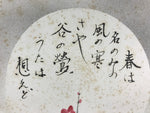 春は
名のみの
風の寒
さや
谷の鶯
うたは
想えど